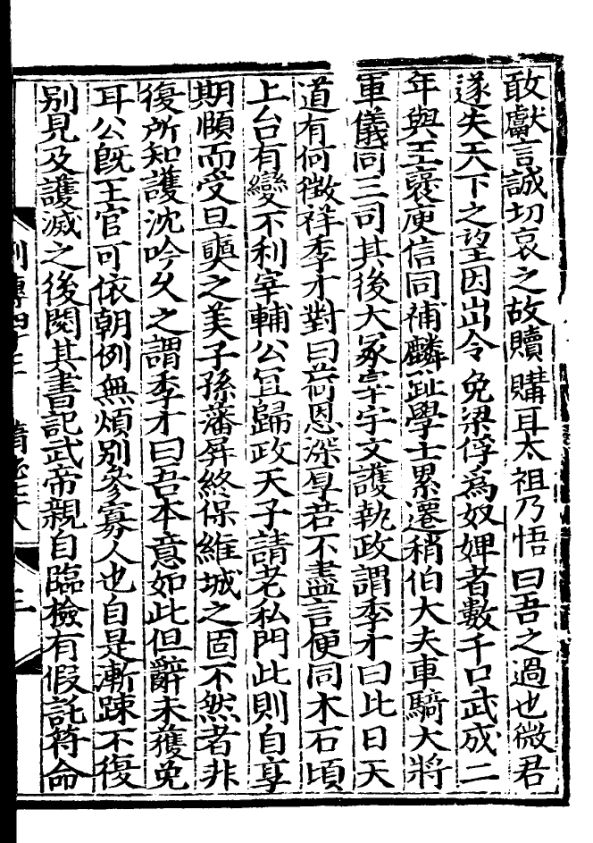 敢獻言誠切哀之故贖購耳太祖乃悟曰吾之過也微君
遂失天下之望因出令免梁俘爲奴婢者數千口武成二
年與王襃庾信同補麟趾學士累遷稍伯大夫車騎大將
軍儀同三司其後大冢宰宇文護執政謂季才曰比日天
道有何徵祥季才對曰荷恩深厚若不盡言便同木石頃
上台有變不利宰輔公宜歸政天子請老私門此則自享
期頤而受旦奭之美子孫藩屏終保維城之固不然者非
復所知護沈吟久之謂季才曰吾本意如此但辭未獲免
耳公旣王官可依朝例無煩別參寡人也自是漸踈不復
別見及護滅之後閱其書記武帝親自臨檢有假託符命
列傳四十三